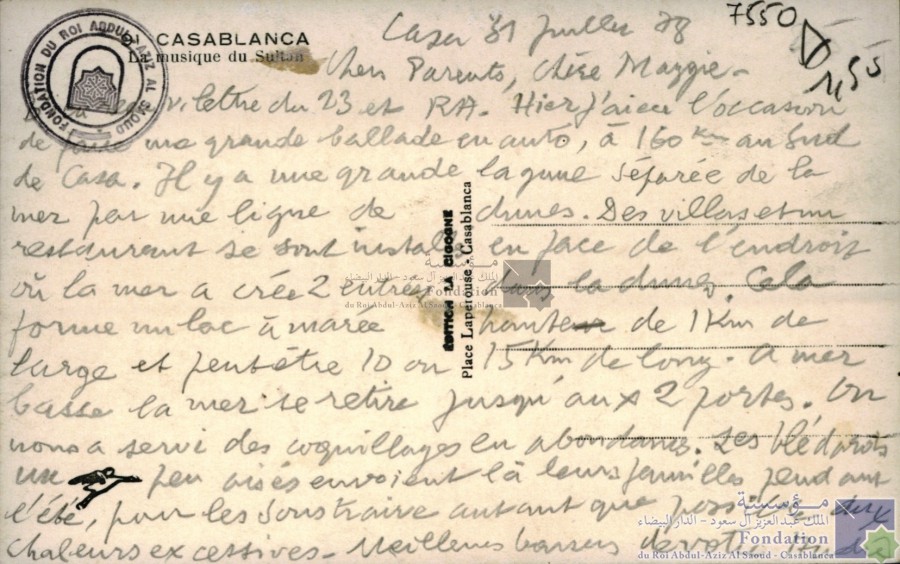 7550
1,55
CASABLANCA
La musique du Sultan
FONDATION DU ROI ABDUL-AZIZ AL SAOUD
Casa 31 Juillet 38
Chers Parents, Chère Maggie -
lettre du 23 et RA. Hier j'ai eu l'occasion
de faire une grande ballade en auto, à 160 Km au Sud
de Casa. Il y a une grande lagune séparée de la
mer par une ligne de dunes. Des villas et un
restaurant se sont installés en face de l'endroit
où la mer a crée 2 entrées dans la dune. Cela
forme un lac à marée haute de 1 Km de
large et peut être 10 ou 15 Km de long. A mer
basse la mer se retire jusqu'aux 2 portes. On
nous a servi des coquillages en abondance. Les blédards
un peu aisés envoient là leurs familles pendant
l'été, pour les soustraire autant que possible aux
chaleurs excessives - Meilleurs baisers de votre
EDITION LA CIGOGNE
Place Laperouse - Casablanca
مؤسسة
الملك عبد العزيز آل سعود - الدار البيضاء
Fondation
du Roi Abdul-Aziz Al Saoud - Casablanca
مؤسسة
الملك عبد العزيز آل سعود - الدار البيضاء
Fondation
du Roi Abdul-Aziz Al Saoud - Casablanca